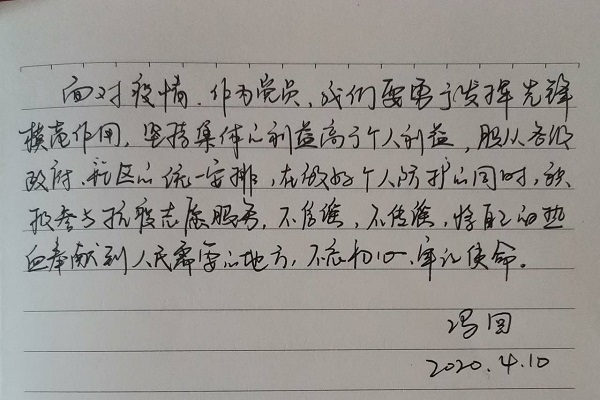 面对疫情,作为党员,我们要勇于发挥先锋
模范作用,坚持集体的利益高于个人利益,服从各级
政府、社区的统一安排,在做好个人防护的同时,积
极参与抗疫志愿服务,不信谣,不传谣,将自己的热
血奉献到人民需要的地方,不忘初心、牢记使命。
冯国
2020.4.10